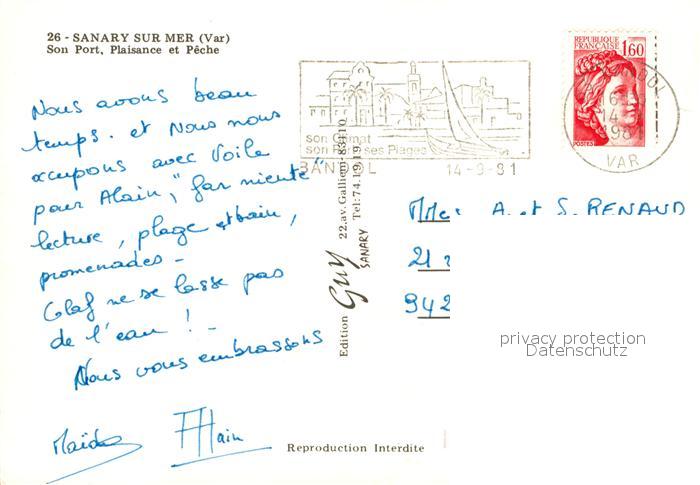 26 - SANARY SUR MER (Var)
Son Port, Plaisance et Pêche
Nous avons beau
temps. et Nous nous
occupons avec Voile
pour Alain, "far niente"
lecture, plage et bain,
promenades -
Olaf ne se lasse pas
de l'eau ! -
Nous vous embrassons
Alain
Edition Guy 22, av. Gallieni - 83110
SANARY Tel: 74.19.19
son Climat
ses Plages
BANDOL 14-9-81
REPUBLIQUE
FRANÇAISE 1,60
POSTES
14-9
1981
VAR
A. et S. RENAUD
21
942
privacy protection
Datenschutz
Reproduction Interdite